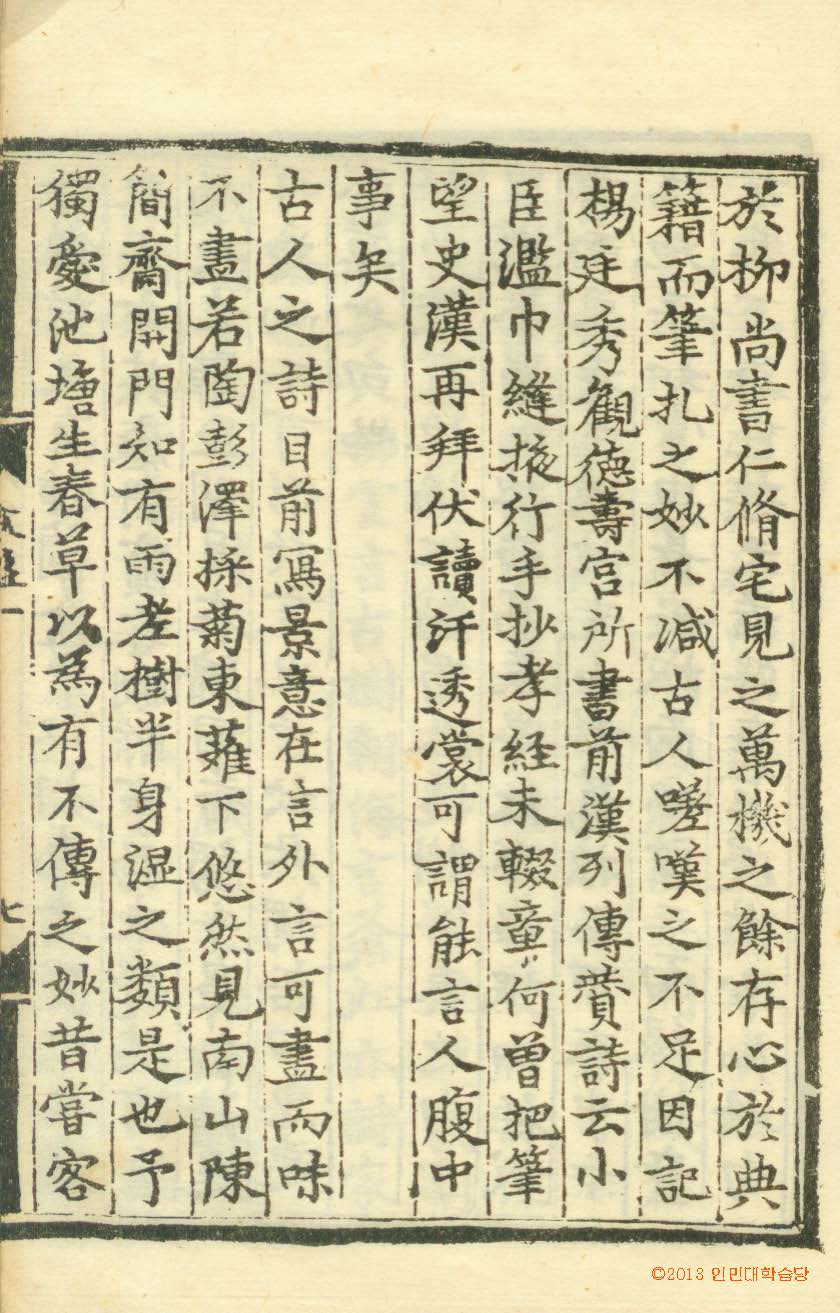 於柳尚書仁脩宅見之萬機之餘存心於典
籍而筆扎之妙不减古人嗟嘆之不足因記
楊廷秀觀德壽宮所書前漢列傳賛詩云小
臣濫巾縫掖行手抄孝経未輟章何曾把筆
望史漢再拜伏讀汗透裳可謂能言人腹中
事矣
古人之詩目前寫景意在言外言可盡而味
不盡若陶彭澤採菊東蘺下悠然見南山陳
簡齋開門知有雨老樹半身濕之類是也予
獨愛池塘生春草以為有不傳之妙昔嘗客
七
©2013 인민대학습당